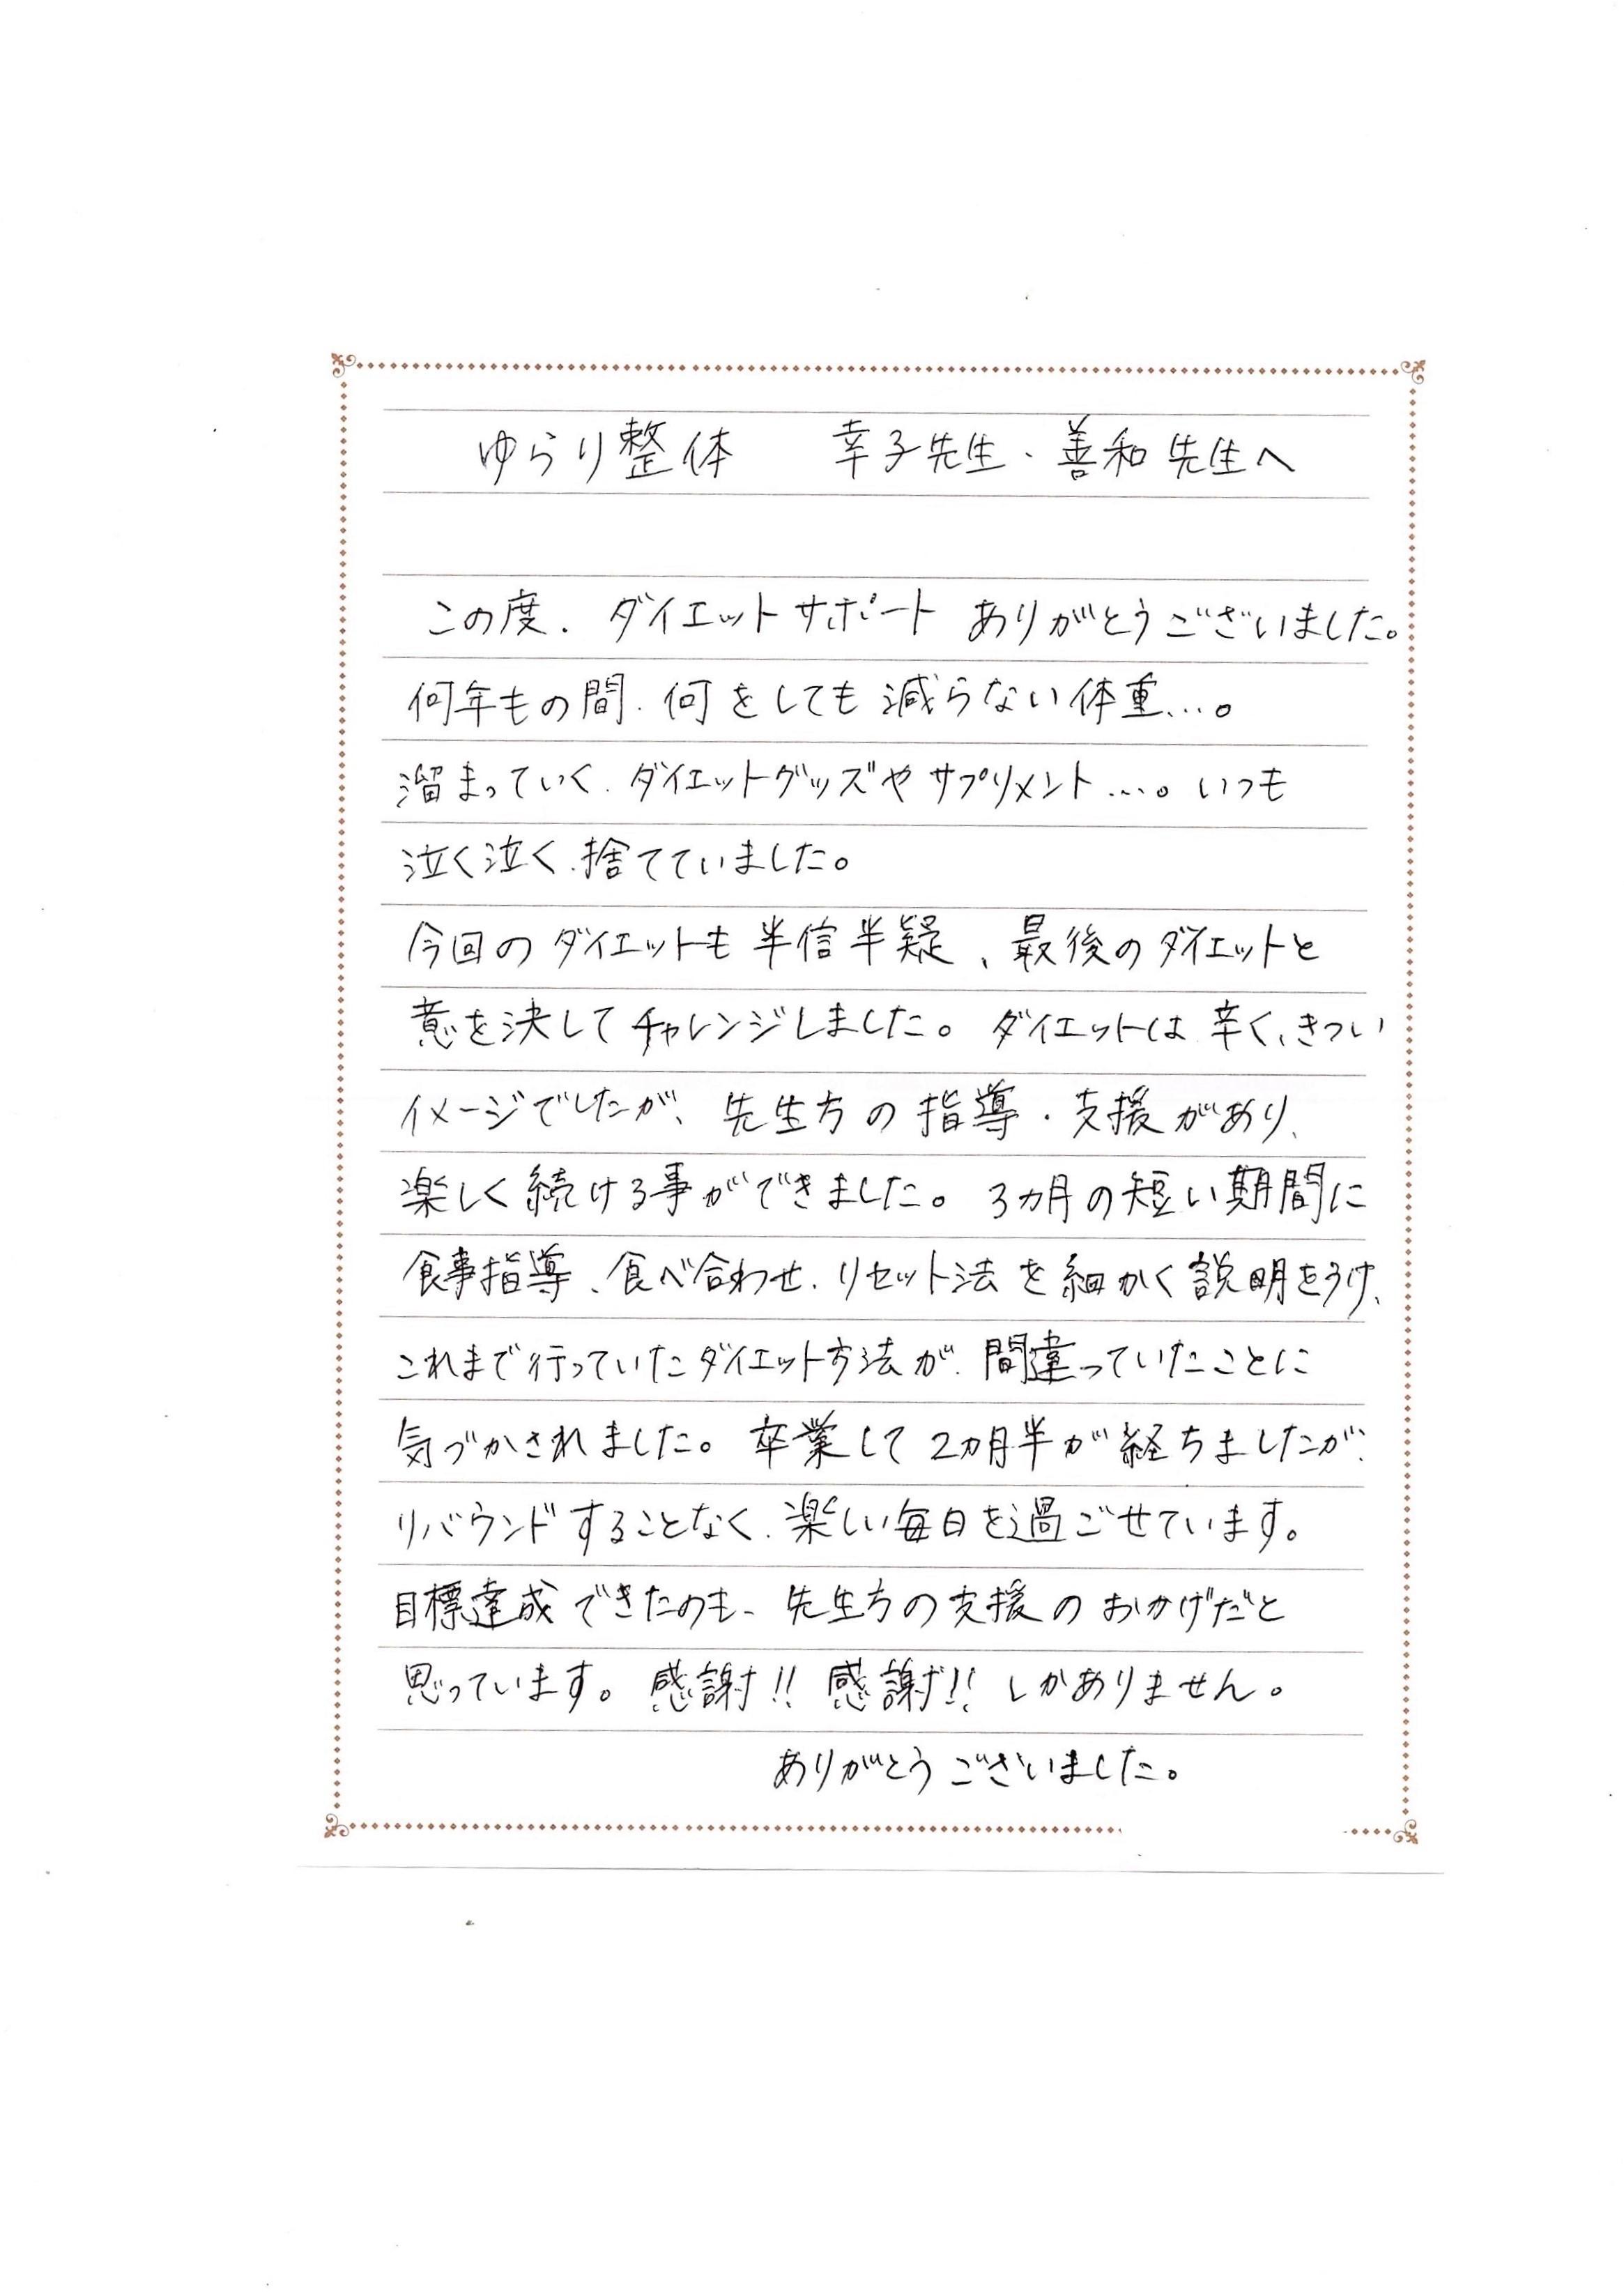 ゆらり整体　幸子先生、善和先生へ
この度、ダイエットサポート ありがとうございました。
何年もの間、何をしても減らない体重…。
溜まっていく、ダイエットグッズやサプリメント…。いつも
泣く泣く、捨てていました。
今回のダイエットも半信半疑、最後のダイエットと
意を決してチャレンジしました。ダイエットは辛く、きつい
イメージでしたが、先生方の指導・支援があり、
楽しく続ける事ができました。3カ月の短い期間に
食事指導、食べ合わせ、リセット法を細かく説明をうけ、
これまで行っていたダイエット方法が、間違っていたことに
気づかされました。卒業して2カ月半が経ちましたが、
リバウンドすることなく、楽しい毎日を過ごせています。
目標達成できたのも、先生方の支援のおかげだと
思っています。感謝!! 感謝!! しかありません。
ありがとうございました。